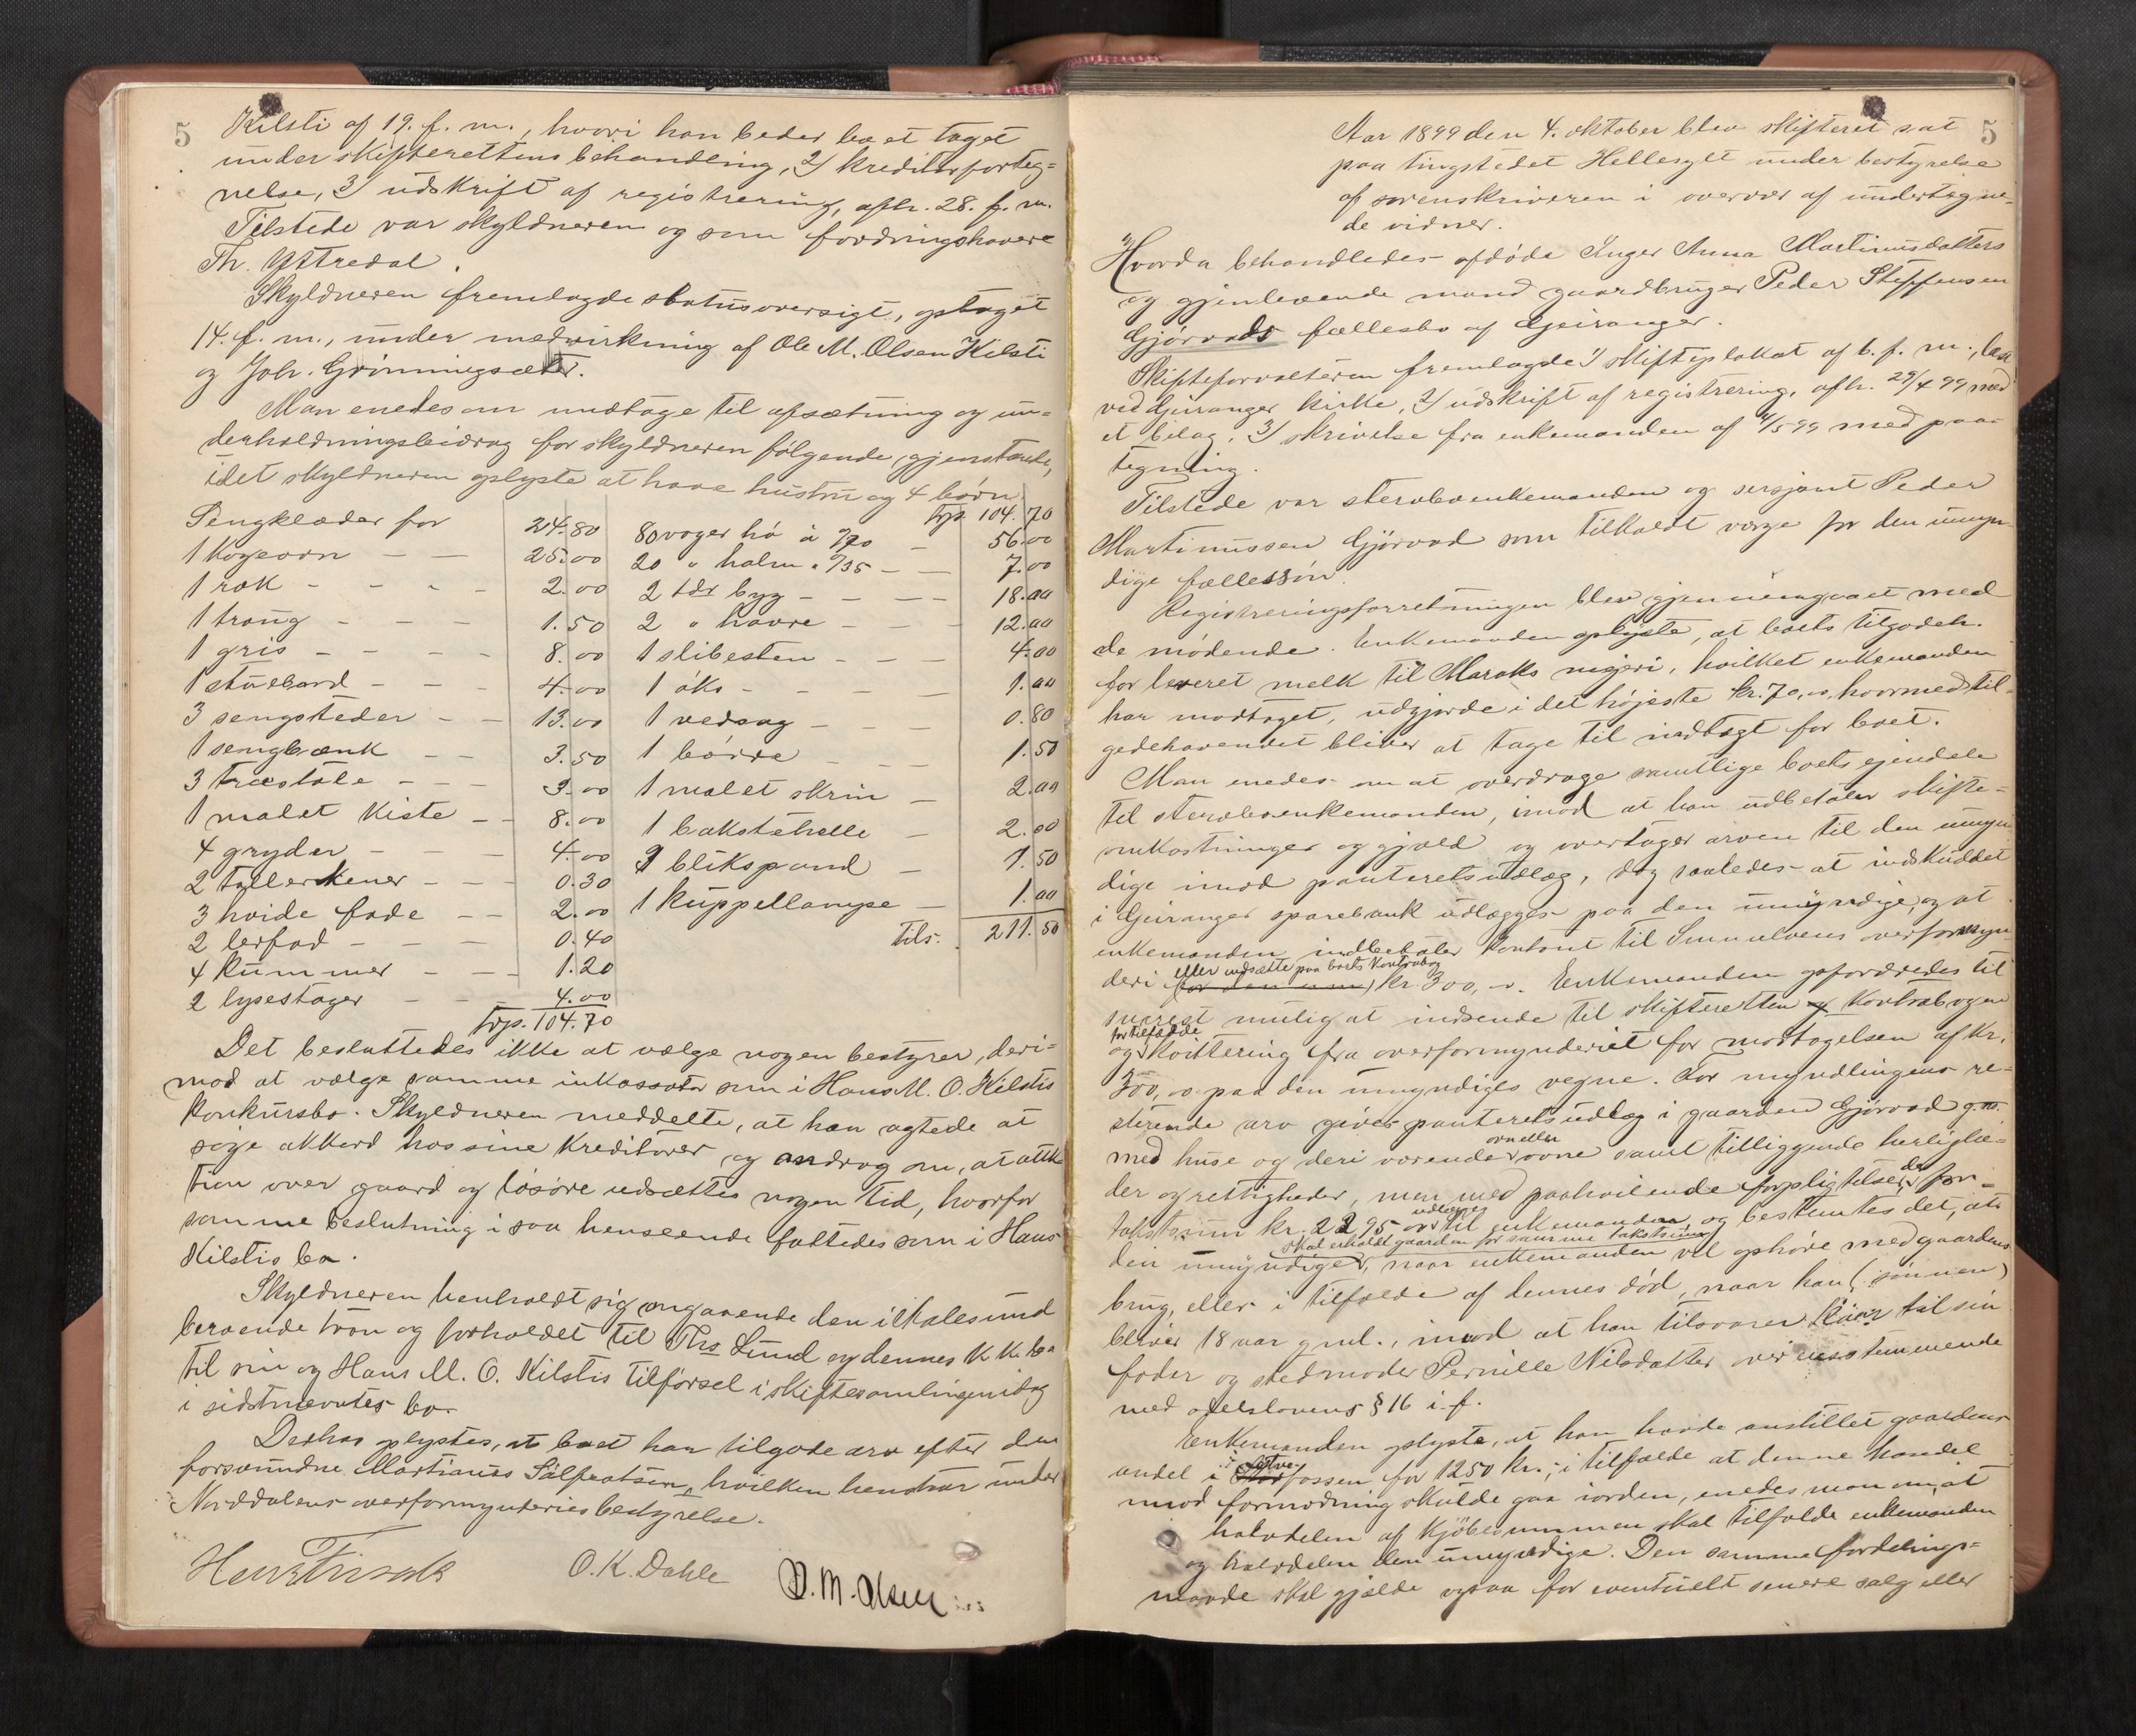 5
Kilsti af 19. f. m., hvori han beder boet taget
under skifterettens behandling, 2) kreditorforteg=
nelse, 3) udskrift af registrering, afh. 28. f. m.
Tilstede var skyldneren og som fordringshavere
Th. Yttredal.
Skyldneren fremlagde statusoversigt, optaget
14. f. m., under medvirkning af Ole M. Olsen Kilsti
og Joh. Grönningsæter.
Man enedes om undtage til afsætning og un=
derholdningsbidrag for skyldneren fölgende gjenstande,
idet skyldneren oplyste at have hustru og 4 börn.
Sengklæder for 24.80
1 kogeovn – – 25.00
1 rok – – – 2.00
1 traug – – – 1.50
1 gris – – – – 8.00
1 stuebord – – – 4.00
3 sengsteder – – 13.00
1 sengbænk – – 3.50
3 træstole – – – 3.00
1 malet kiste – – 8.00
4 gryder – – – 4.00
2 tallerkener – – – 0.30
3 hvide fade – – 2.00
2 lerfad – – – 0.40
4 kummer – – – 1.20
2 lysestager – – 4.00
Trp. 104.70
Trp. 104.70
80 voger hö à 0/70 – 56.00
20 " halm " 0/35 – – 7.00
2 tdr byg – – – – 18.00
2 " havre – – – 12.00
1 slibesten – – – 4.00
1 öks – – – – 1.00
1 vedsag – – – 0.80
1 börre – – – 1.50
1 malet skrin – 2.00
1 bakstehelle – 2.00
3 blikspand – 1.50
1 kuppellampe – 1.00
Tils. 211.50
Det besluttedes ikke at vælge nogen bestyrer, deri=
mod at vælge samme inkassator som i Hans M. O. Kilstis
konkursbo. Skyldneren meddelte, at han agtede at
söge akkord hos sine kreditorer og androg om, at auk
tion over gaard og lösöre udsættes nogen tid, hvorfor
samme beslutning i saa henseende fattedes som i Hans
Kilstis bo.
Skyldneren henholdt sig angaaende den i Aalesund
beroende tran og forholdet til Ths Lund og dennes K. K. bo
til sin og Hans M. O. Kilstis tilförsel i skiftesamlingen idag
i sidstnævntes bo.
Derhos oplystes, at boet har tilgode arv efter den
forsvundne Martinus Salfeatsen, hvilken henstaar under
Norddalens overformynderies bestyrelse.
O. K. Dahle
O. M. Olsen
5
Aar 1899 den 4. oktober blev skifteret sat
paa tingstedet Hellesylt under bestyrelse
af sorenskriveren i overvær af undertegne=
de vidner.
Hvorda behandledes afdöde Inger Anna Martinusdatters
og gjenlevende mand gaardbruger Peder Steffensen
Gjörvads fællesbo af Geiranger.
Skifteforvalteren fremlagde 1) skifteplakat af 6. f. m., læst
ved Geiranger kirke, 2) udskrift af registrering, afh. 29/4 99 med
et bilag, 3) skrivelse fra enkemanden af 4/5 99 med paa=
tegning.
Tilstede var stervboenkemanden og sersjant Peder
Martinussen Gjörvad som tilkaldt værge for den umyn=
dige fællessön.
Registreringsforretningen blev gjennemgaaet med
de mödende. Enkemanden oplyste, at boets tilgodeh.
for leveret melk til Maraks meieri, hvilket enkemanden
har modtaget, udgjorde i det höjeste kr. 70,00, hvormed til=
godehavendet bliver at tage til indtægt for boet.
Man enedes om at overdrage samtlige boets ejendele
til stervboenkemanden, imod at han udbetaler skifte=
omkostninger og gjæld og overtager arven til den umyn
dige imod panteretsudlæg, dog saaledes at indskuddet
i Geiranger sparebank udlægges paa den umyndige, og at
enkemanden indbetaler kontant til Sunnelvens overformyn=
eller indsætte paa boets kontrabog
deri (for den um) kr. 300, –. Enkemanden opfordredes til
snarest mulig at indsende til skifteretten kontrabogen
for tilfælde
og kvittering fra overformynderiet for modtagelsen af kr.
300, oo paa den umyndiges vegne. For myndlingens re=
sterende arv gives panteretsudlæg i gaarden Gjörvad g. no.
ovn eller
med huse og deri værende ovne samt tilliggende herlighe=
der og rettigheder, men med paahvilende forpligtelser, der for
udlægges
takstsum kr. 2295 oo til enkemanden, og bestemtes det, at
skal erholde gaarden for samme takstsum
den umyndige, naar enkemanden vil ophöre med gaardens
brug, eller i tilfælde af dennes död, naar han (sönnen)
bliver 18 aar gml., imod at han tilsvarer kaar til sin
fader og stedmoder Pernille Nilsdatter overensstemmende
med odelslovens § 16 i. f.
Enkemanden oplyste, at han havde avstillet gaardens
andel i fossen for 1250 kr.; i tilfælde at denne handel
mod formodning skulde gaa iorden, enedes man om, at
halvdelen af kjöbesummen skal tilfalde enkemanden
og halvdelen den umyndige. Den samme fordelings=
maade skal gjælde ogsaa for eventuelt senere salg eller